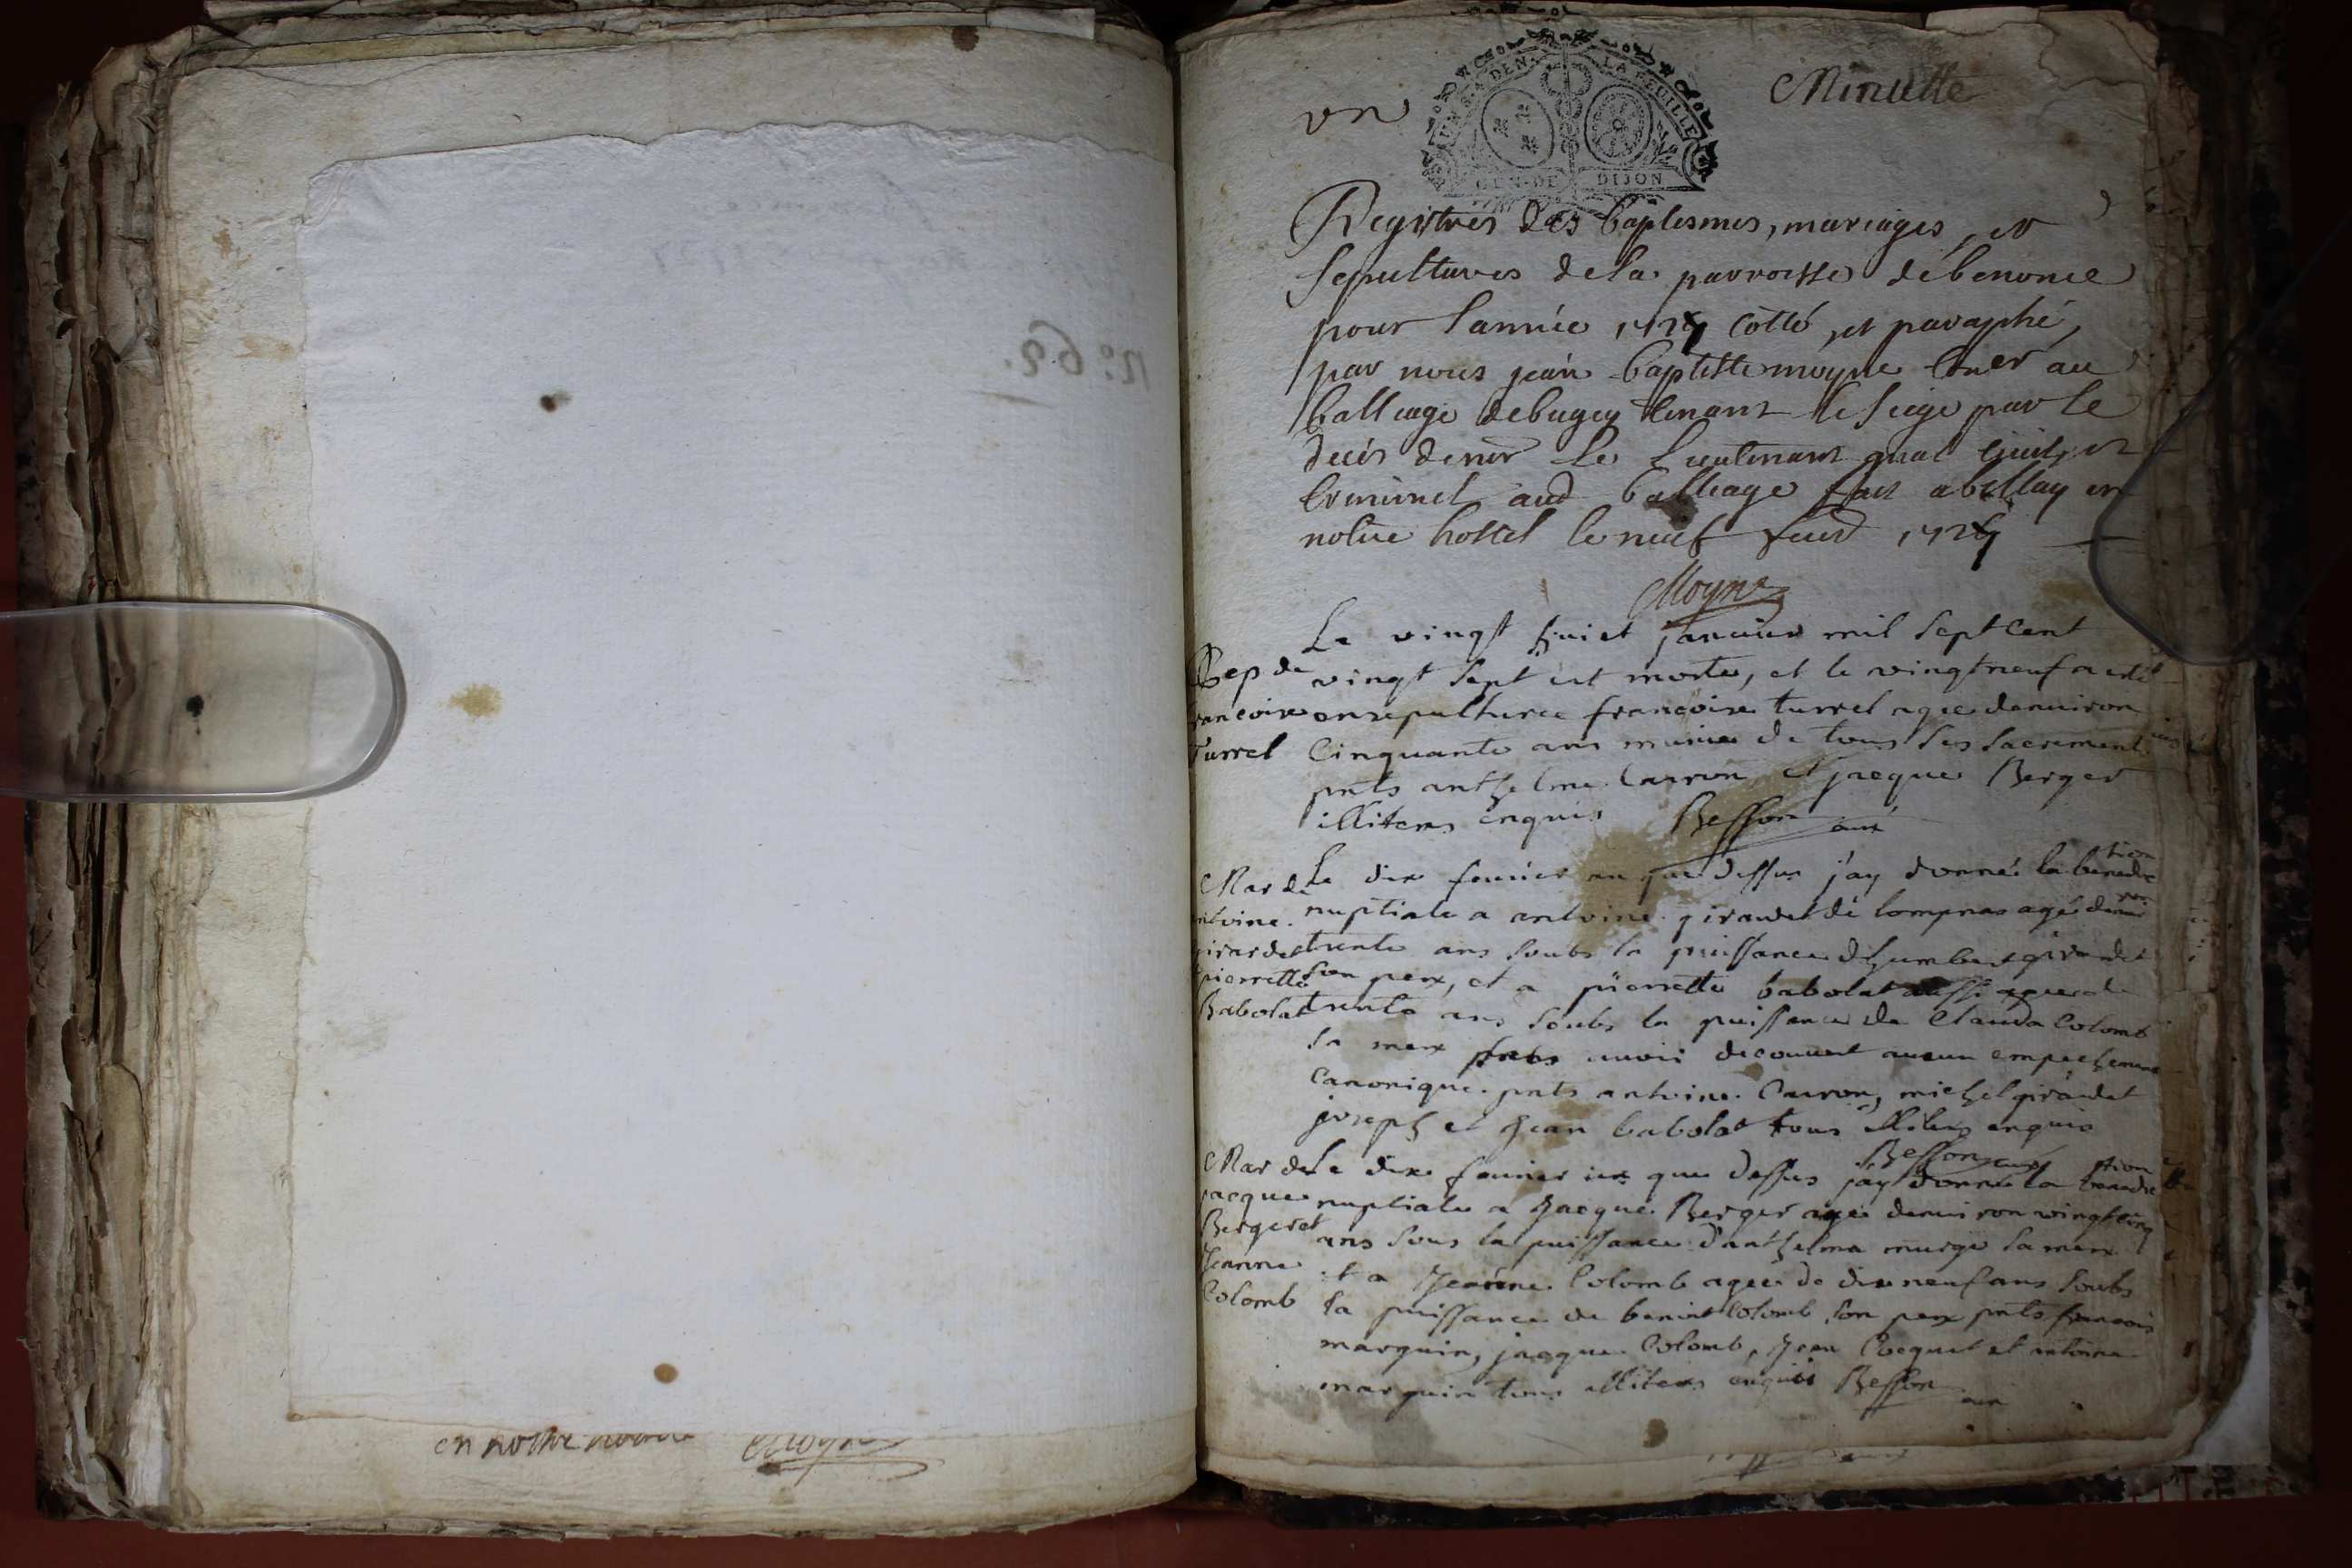 nº: 62.
en nostre Moyne
un
Minutte
LA FEUILLE
GEN. DE DIJON
Registres des baptesmes, mariages, et
sepultures de la parroisse de benonce
pour l'année 1727 cotté, et paraphé,
par nous jean baptiste moyne au
balliage de bugey tenant le siege par le
deces de le lieutenant gnal civil, et
criminel aud balliage fait a bellay en
notre hostel le neuf 1727
Moyne
Le vingt huict janvier mil sept cent
Sep de vingt sept est morte, et le vingtneuf a esté
francoise ensepulturee francoise turrel agee denviron
Turrel cinquante ans munie de tous ses sacrements
pnts anthelme Carron, et jacque Berger
illiteres enquis Besson curé
Mar de Le dix fevrier an que dessus j'ay donné la benediction
antoine nuptiale a antoine girardet de lompnas agé denviron
girardet trente ans soubs la puissance d'humbert girardet
pierrette son pere, et a pierrette babolat aussi agee de
Babolat trente ans soubs la puissance de Clauda Colomb
sa mere sans avoir decouvert aucun empechement
canonique. pnts antoine Carron, michel girardet
joseph et jean babolat tous illiteres enquis
Besson curé
Mar de Le dix fevrier que dessus j'ay donné la benediction
jacque nuptiale a Jacque Berger agé denviron vingt cinq
Berger et ans sous la puissance d'anthelma murge sa mere
Jeanne et a Jeanne Colomb agee de dix neuf ans soubs
Colomb la puissance de benoit Colomb son pere pnts francois
marquin, jacque Colomb, jean Cocquet et antoine
marquin tous illiteres enquis Besson curé